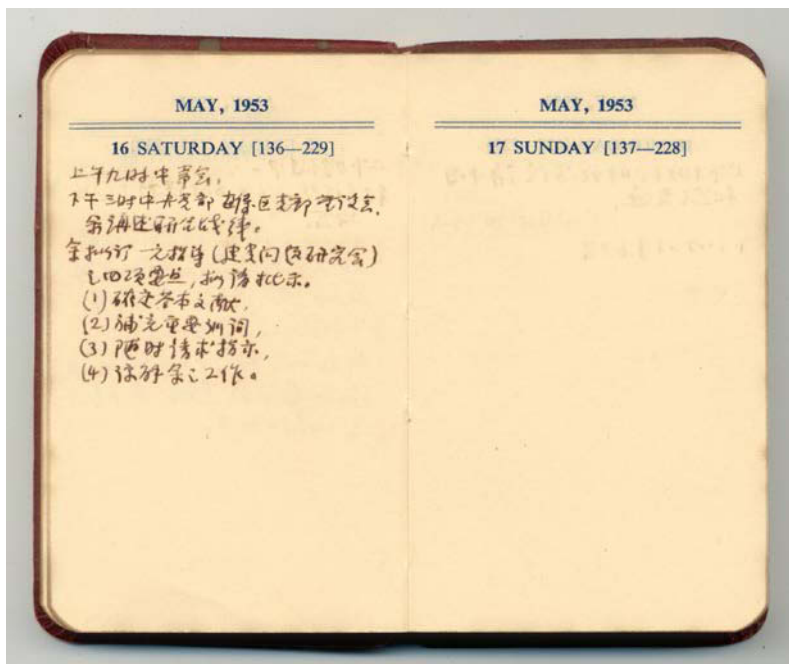 MAY, 1953
16 SATURDAY [136—229]
上午九时中常会,
下午三时中央党部 直属区支部 会,
余讲述
余拟订 元 (建党问题研究会)
之四项要点, 拟请批示。
(1) 研定基本文献,
(2) 补充重要训词,
(3) 随时请求指示,
(4) 余之工作。
MAY, 1953
17 SUNDAY [137—228]